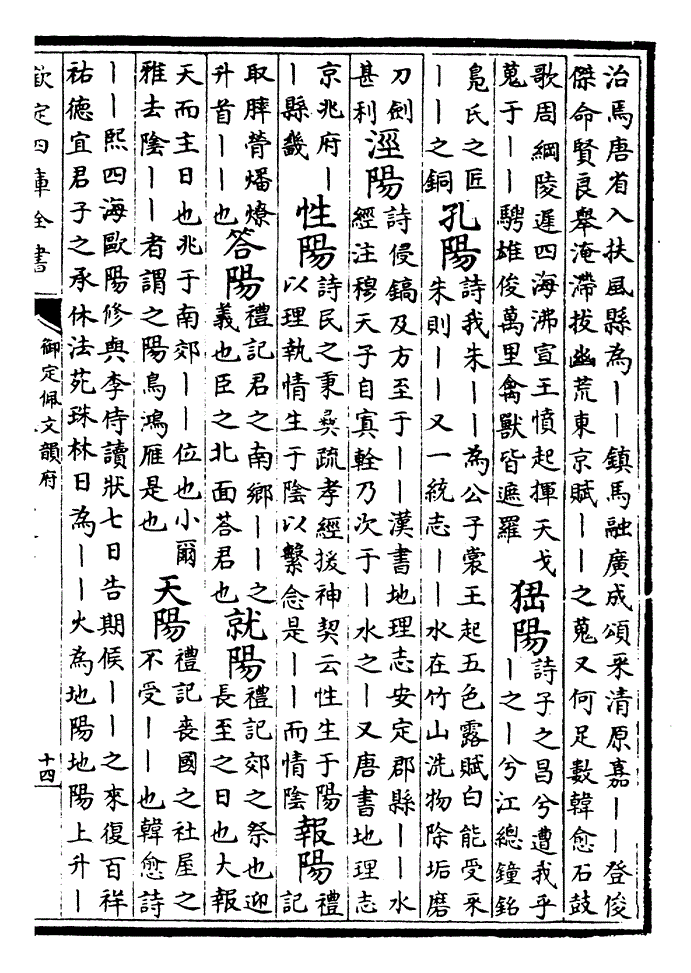 治馬唐省入扶風縣為丨丨鎮馬融廣成頌采清原嘉丨丨登俊
傑命賢良舉淹滯拔幽荒東京賦丨丨之蒐又何足數韓愈石鼓
歌周綱陵遲四海沸宣王憤起揮天戈
蒐于丨丨騁雄俊萬里禽獸皆遮羅
峱陽
詩子之昌兮遭我乎
丨之丨兮江總鐘銘
鳧氏之匠
丨丨之銅
孔陽
詩我朱丨丨為公子裳王起五色露賦白能受采
朱則丨丨又一統志丨丨水在竹山洗物除垢磨
刀劍
甚利
涇陽
詩侵鎬及方至于丨丨漢書地理志安定郡縣丨丨水
經注穆天子自寘軨乃次于丨水之丨又唐書地理志
京兆府丨
丨縣畿
性陽
詩民之秉彝疏孝經援神契云性生于陽
以理執情生于陰以繫念是丨丨而情陰
報陽
禮
記
取膟膋燔燎
升首丨丨也
答陽
禮記君之南鄉丨丨之
義也臣之北面荅君也
就陽
禮記郊之祭也迎
長至之日也大報
天而主日也兆于南郊丨丨位也小爾
雅去陰丨丨者謂之陽鳥鴻雁是也
天陽
禮記喪國之社屋之
不受丨丨也韓愈詩
丨丨熙四海歐陽修與李侍讀狀七日告期候丨丨之來復百祥
祐德宜君子之承休法苑珠林日為丨丨火為地陽地陽上升丨
欽定四庫全書
御定佩文韻府
十四